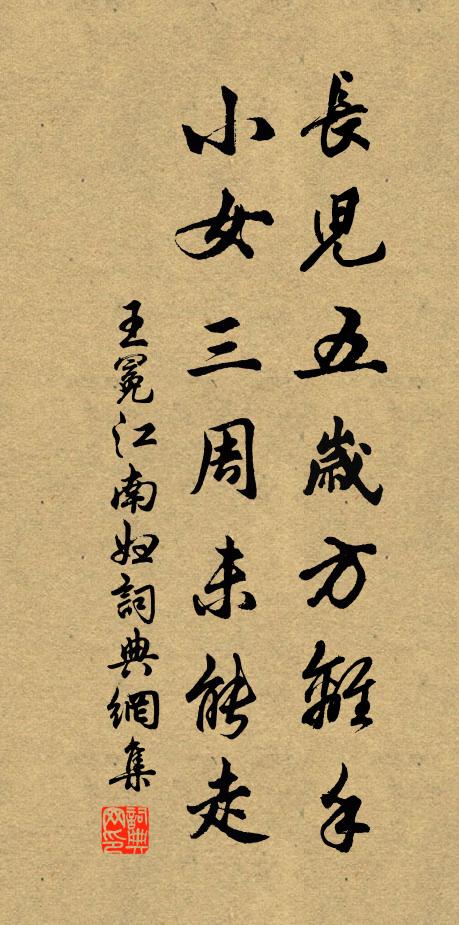 長兒五歲方離手
小女三周未能走
王冕江南婦詞典網集
詞典網印